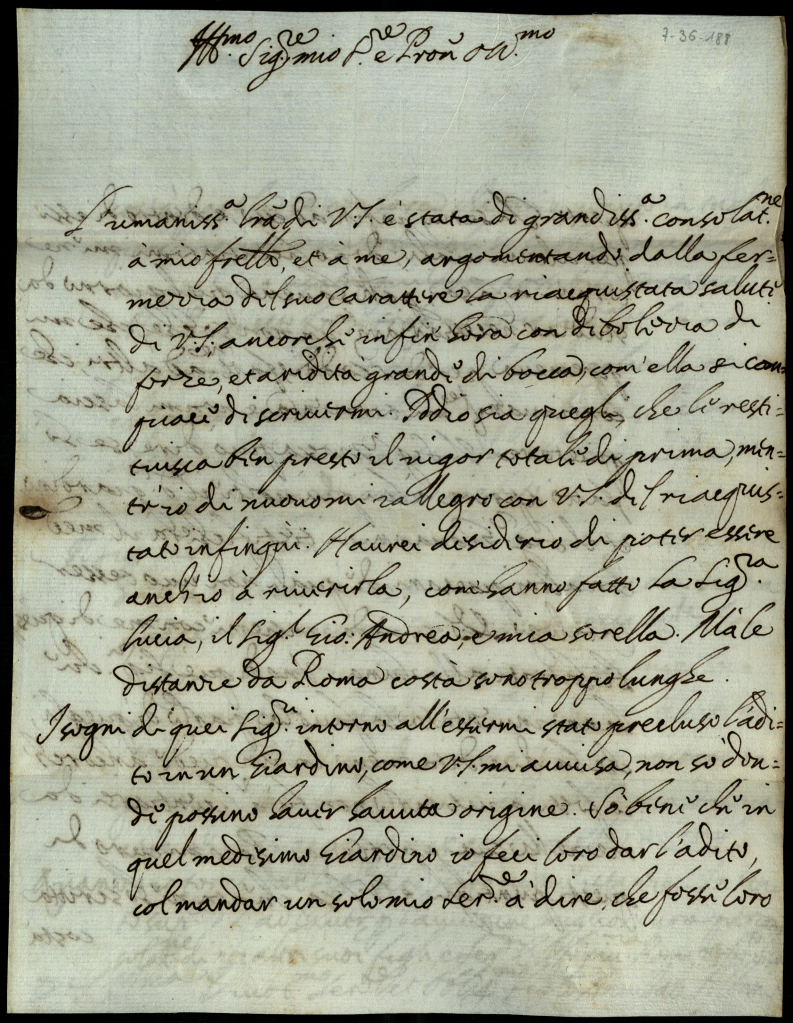 7-36-188
Ill.mo Sig.re mio S.re e Pron̄ Oss.mo
L'umaniss.a l̄ra di V.S. è stata di grandiss.a consolat.ne
à mio fr̄ello, et à me, argomentando dalla fer=
mezza del suo carattere la riacquistata salute
di V.S. ancorche infin hora con debolezza di
forze, et aridità grande di bocca, com'ella si com=
piace di scrivermi. Iddio sia quegli, che le resti=
tuisca ben presto il vigor totale di prima, men=
tr'io di nuovo mi rallegro con V.S. del riacquis=
tato infinqui. Haurei desiderio di poter essere
anch'io à riverirla, com'hanno fatto la Sig.ra
Lucia, il Sig.r Gio. Andrea, e mia sorella. Mà le
distanze da Roma costà sono troppo lunghe.
I sogni di quei Sig.ri intorno all'essermi stato precluso l'adi=
to in un Giardino, come V.S. mi avvisa, non sò don=
de possino haver havuta origine. Sò bene che in
quel medesimo Giardino io feci loro dar l'adito,
col mandar un solo mio Ser.re à dire, che fosse loro